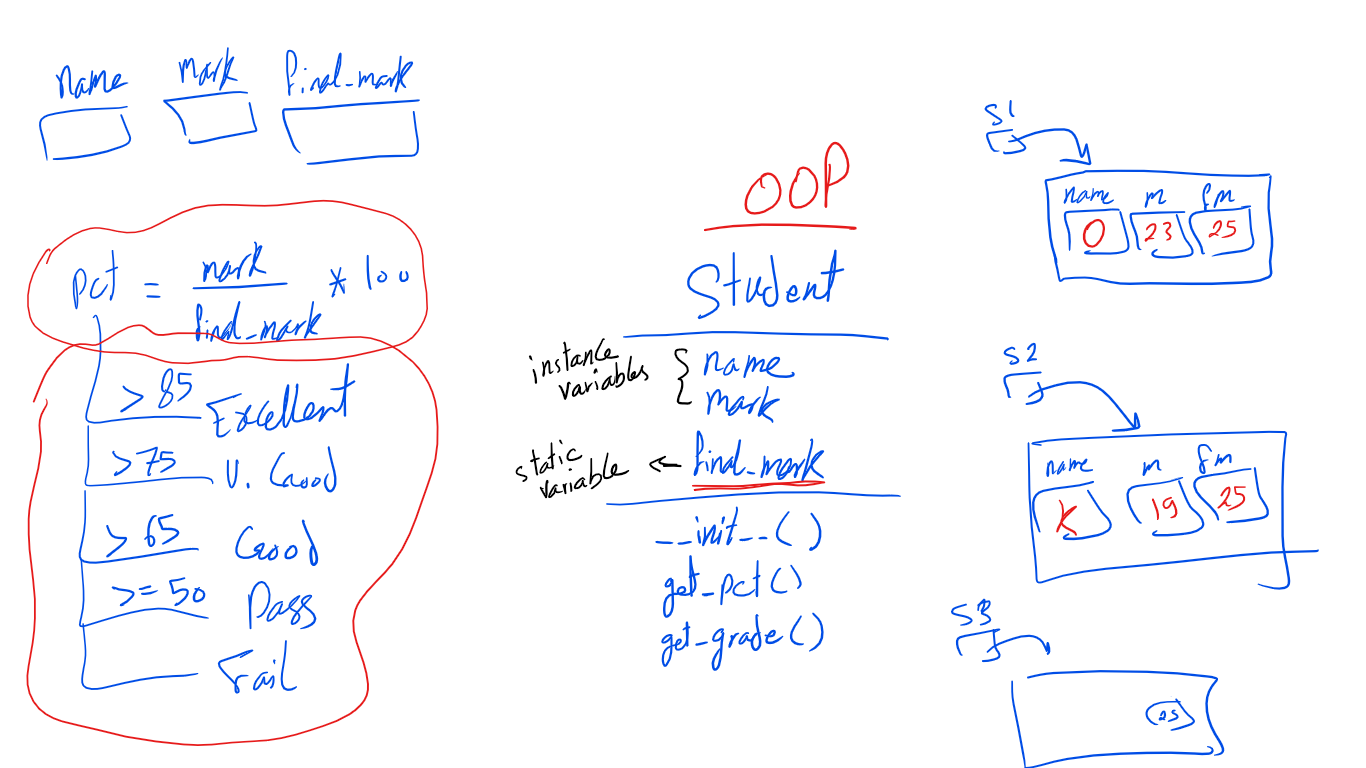 name mark final_mark
pct = mark / final_mark * 100
> 85 Excellent
>75 V. Good
> 65 Good
>= 50 Pass
Fail
OOP
Student
instance variables { name
mark
static variable ← final_mark
__init__()
get_pct()
get_grade()
S1
name m fm
O 23 25
S2
name m fm
K 19 25
S3
25